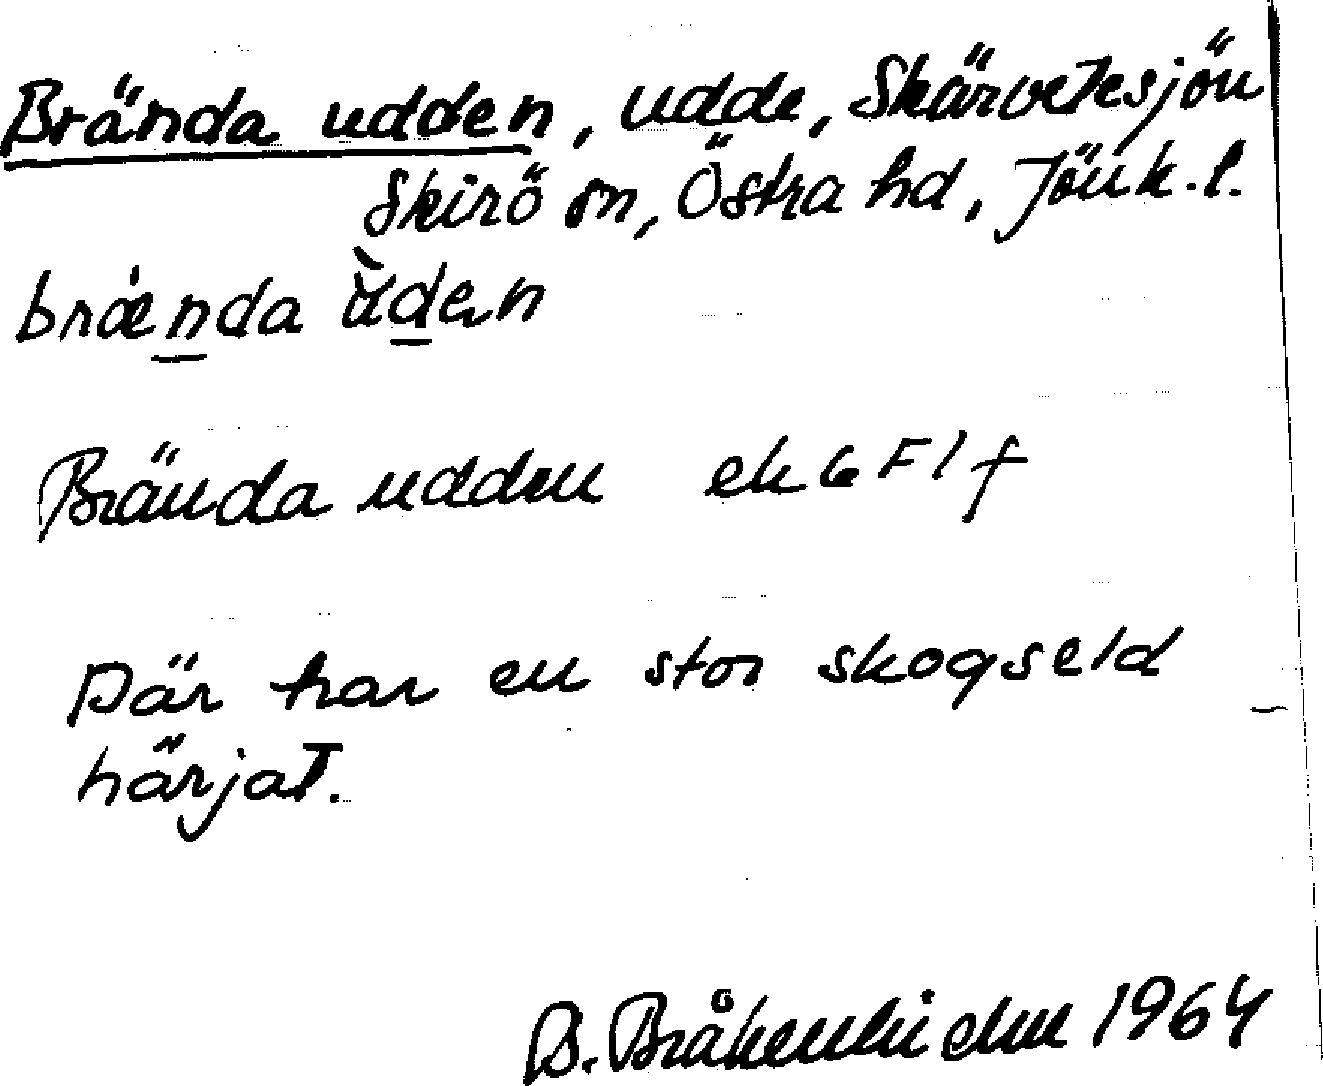 Brända udden, udde, Skärvetesjön
Skirö sn, Östra hd, Jönk.l.
brænda ùden
Brända udden ek 6F1f
Där har en stor skogseld
härjat.
B. Bråkenhielm 1964